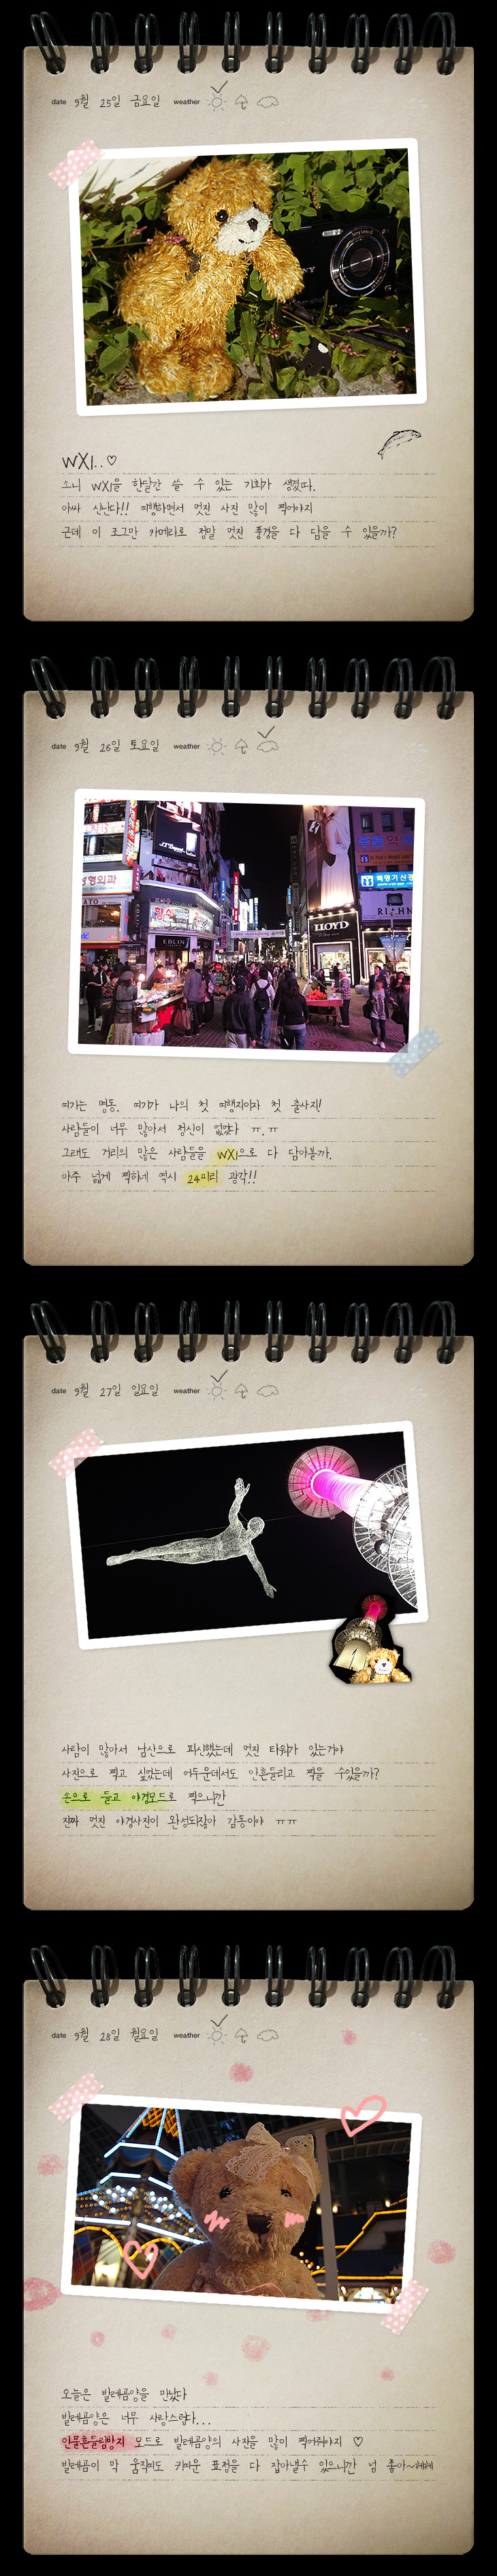 date 9월 25일 금요일 weather
WX1..♡
소니 WX1을 한달간 쓸 수 있는 기회가 생겼다.
아싸 신난다!! 여행하면서 멋진 사진 많이 찍어야지
근데 이 조그만 카메라로 정말 멋진 풍경을 다 담을 수 있을까?
date 9월 26일 토요일 weather
형외과
EBLIN
LLOYD
여기는 명동. 여기가 나의 첫 여행지이자 첫 출사지!
사람들이 너무 많아서 정신이 없었다 ㅠ.ㅠ
그래도 거리의 많은 사람들을 WX1으로 다 담아볼까.
아주 넓게 찍히네 역시 24미리 광각!!
date 9월 27일 일요일 weather
사람이 많아서 남산으로 피신했는데 멋진 타워가 있는거야
사진으로 찍고 싶었는데 어두운데서도 안흔들리고 찍을 수있을까?
손으로 들고 야경모드로 찍으니깐
진짜 멋진 야경사진이 완성되잖아 감동이야 ㅠㅠ
date 9월 28일 월요일 weather
오늘은 발레곰양을 만났다
발레곰양은 너무 사랑스럽다...
인물흔들림방지 모드로 발레곰양의 사진을 많이 찍어줘야지 ♡
발레곰이 막 움직여도 귀여운 표정을 다 잡아낼수 있으니깐 넘 좋아~헤헤